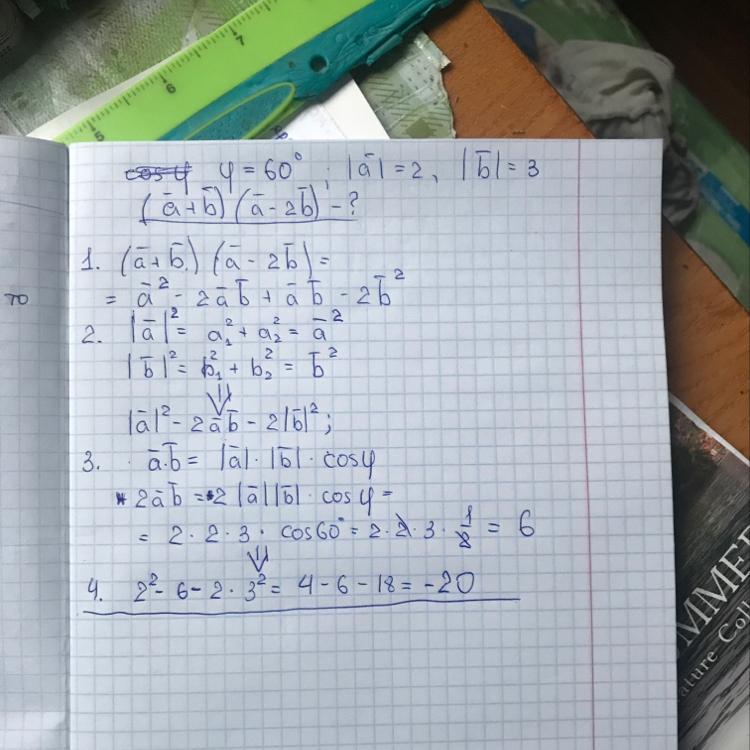 5 6 7
cos φ φ = 60° ; |a̅| = 2, |b̅| = 3
(a̅ + b̅) (a̅ - 2b̅) - ?
1. (a̅ + b̅) (a̅ - 2b̅) =
= a̅² - 2a̅b̅ + a̅b̅ - 2b̅²
2. |a̅|² = a₁² + a₂² = a̅²
|b̅|² = b₁² + b₂² = b̅²
⇓
|a̅|² - 2a̅b̅ - 2|b̅|²;
3. a̅·b̅ = |a̅|·|b̅|·cosφ
2a̅b̅ = 2|a̅||b̅|·cosφ =
= 2·2·3·cos60° = 2·2·3·1/2 = 6
⇓
4. 2² - 6 - 2·3² = 4 - 6 - 18 = -20
то
MMER
ature Coll